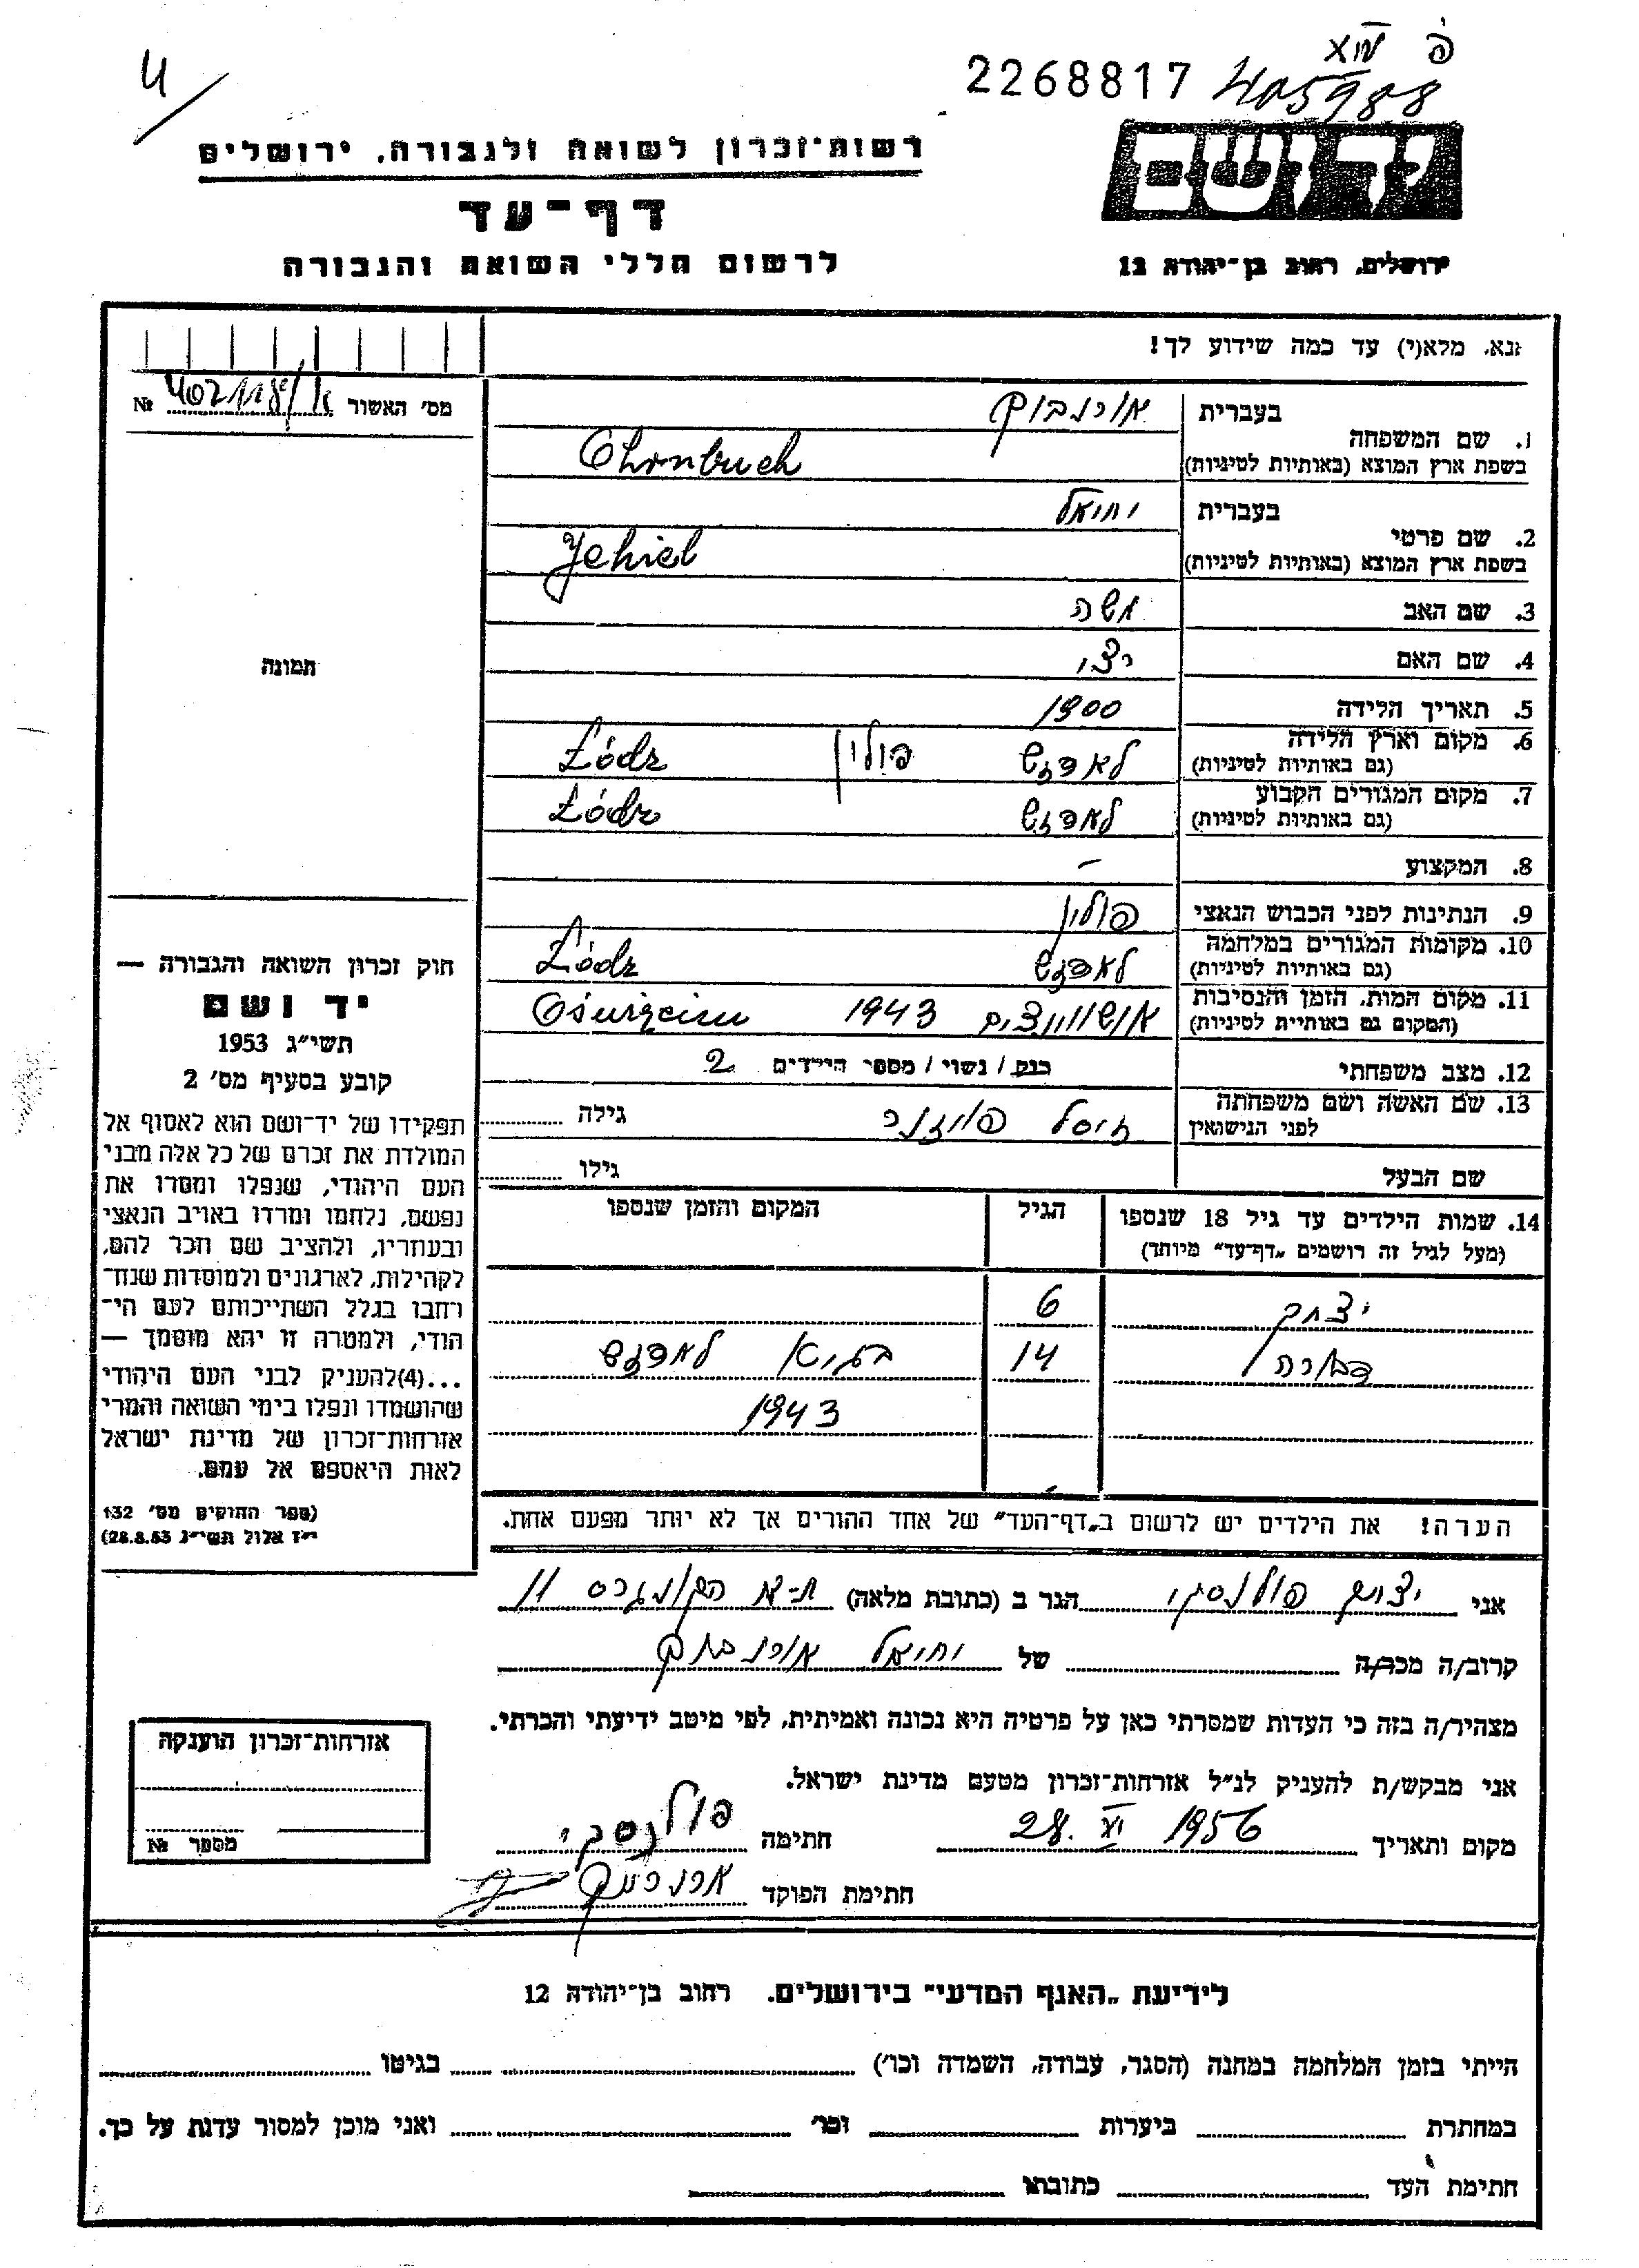 פ XIV
2268817 405988
4/
יד ושם
רשות־זכרון לשואה ולגבורה, ירושלים
דף־עד
לרשום חללי השואה והגבורה
ירושלים, רחוב בן־יהודה 12
נא, מלא(י) עד כמה שידוע לך!
מס' האשור № 402118/
בעברית אורנבוך
1. שם המשפחה
בשפת ארץ המוצא (באותיות לטיניות) Ohrnbuch
בעברית יחיאל
2. שם פרטי
בשפת ארץ המוצא (באותיות לטיניות) Jehiel
3. שם האב משה
4. שם האם
5. תאריך הלידה 1900
6. מקום וארץ הלידה
(גם באותיות לטיניות) לאדזש פולין Łódz
7. מקום המגורים הקבוע
(גם באותיות לטיניות) לאדזש Łódz
8. המקצוע –
9. הנתינות לפני הכבוש הנאצי פולין
10. מקומות המגורים במלחמה
(גם באותיות לטיניות) לאדזש Łódz
11. מקום המות, הזמן והנסיבות
(המקום גם באותיות לטיניות) אושוויצים 1943 Oświęcim
12. מצב משפחתי רווק / נשוי / מספר הילדים 2
13. שם האשה ושם משפחתה
לפני הנישואין גילה
שם הבעל גילו
14. שמות הילדים עד גיל 18 שנספו הגיל המקום והזמן שנספו
(מעל לגיל זה רושמים "דף־עד" מיוחד)
יצחק 6
דבורה 14 בגיטא לאדזש
1943
הערה! את הילדים יש לרשום ב"דף־העד" של אחד ההורים אך לא יותר מפעם אחת.
תמונה
חוק זכרון השואה והגבורה —
יד ושם
תשי"ג 1953
קובע בסעיף מס' 2
תפקידו של יד־ושם הוא לאסוף אל
המולדת את זכרם של כל אלה מבני
העם היהודי, שנפלו ומסרו את
נפשם, נלחמו ומרדו באויב הנאצי
ובעוזריו, ולהציב שם וזכר להם,
לקהילות, לארגונים ולמוסדות שנח־
רחבו בגלל השתייכותם לעם הי־
הודי, ולמטרה זו יהא מוסמך —
...(4)להעניק לבני העם היהודי
שהושמדו ונפלו בימי השואה והמרי
אזרחות־זכרון של מדינת ישראל
לאות היאספם אל עמם.
(ספר החוקים מס' 132
י"ז אלול תשי"ג 28.8.53)
אני פולנסקי הגר ב (כתובת מלאה) ת-א 11
קרוב/ה מכר/ה של יחיאל אורנבוך
מצהיר/ה בזה כי העדות שמסרתי כאן על פרטיה היא נכונה ואמיתית, לפי מיטב ידיעתי והכרתי.
אני מבקש/ת להעניק לנ"ל אזרחות־זכרון מטעם מדינת ישראל.
מקום ותאריך 28. VI 1956 חתימה פולנסקי
חתימת הפוקד
אזרחות־זכרון הוענקה
מספר №
לידיעת "האגף המדעי" בירושלים. רחוב בן־יהודה 12
הייתי בזמן המלחמה במחנה (הסגר, עבודה, השמדה וכו') בגיטו
במחתרת ביערות וכו' ואני מוכן למסור עדות על כך.
חתימת העד כתובתו